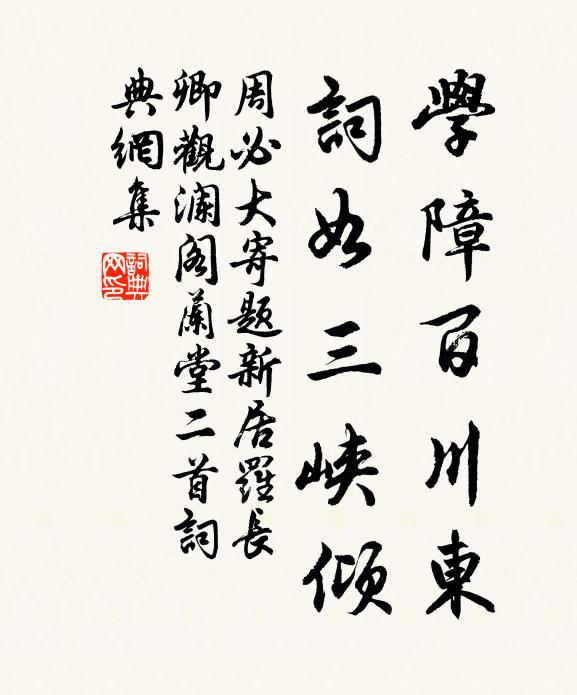 學障百川東
詞如三峽傾
周必大寄題新居羅長
卿觀瀾阁蘭堂二首詞
典網集
詞典
网印